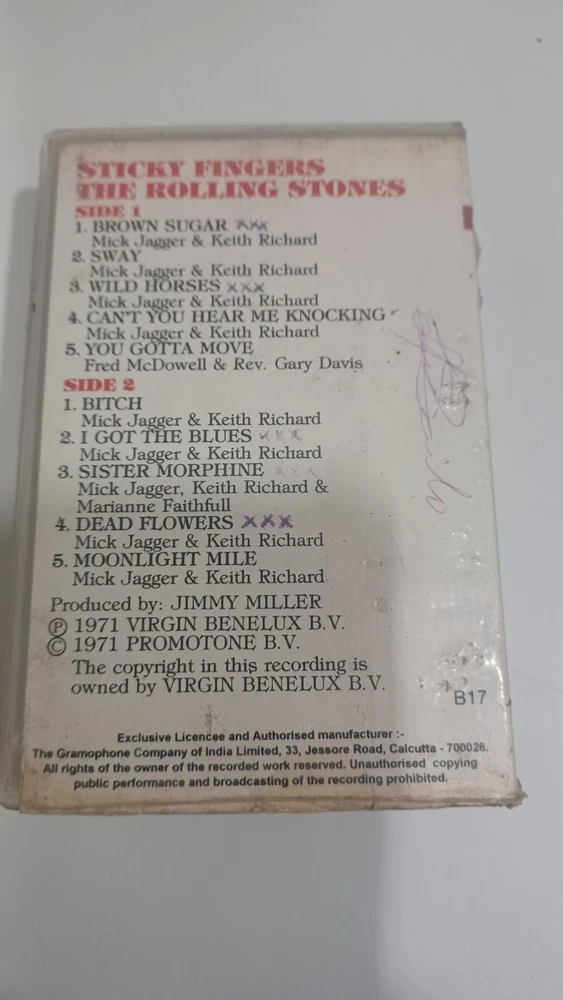 STICKY FINGERS
THE ROLLING STONES
SIDE 1
1. BROWN SUGAR xxx
Mick Jagger & Keith Richard
2. SWAY
Mick Jagger & Keith Richard
3. WILD HORSES xxx
Mick Jagger & Keith Richard
4. CAN'T YOU HEAR ME KNOCKING
Mick Jagger & Keith Richard
5. YOU GOTTA MOVE
Fred McDowell & Rev. Gary Davis
SIDE 2
1. BITCH
Mick Jagger & Keith Richard
2. I GOT THE BLUES xxx
Mick Jagger & Keith Richard
3. SISTER MORPHINE xxx
Mick Jagger, Keith Richard &
Marianne Faithfull
4. DEAD FLOWERS xxx
Mick Jagger & Keith Richard
5. MOONLIGHT MILE
Mick Jagger & Keith Richard
Produced by: JIMMY MILLER
℗ 1971 VIRGIN BENELUX B.V.
© 1971 PROMOTONE B.V.
The copyright in this recording is
owned by VIRGIN BENELUX B.V.
B17
Exclusive Licencee and Authorised manufacturer :-
The Gramophone Company of India Limited, 33, Jessore Road, Calcutta - 700028.
All rights of the owner of the recorded work reserved. Unauthorised copying
public performance and broadcasting of the recording prohibited.